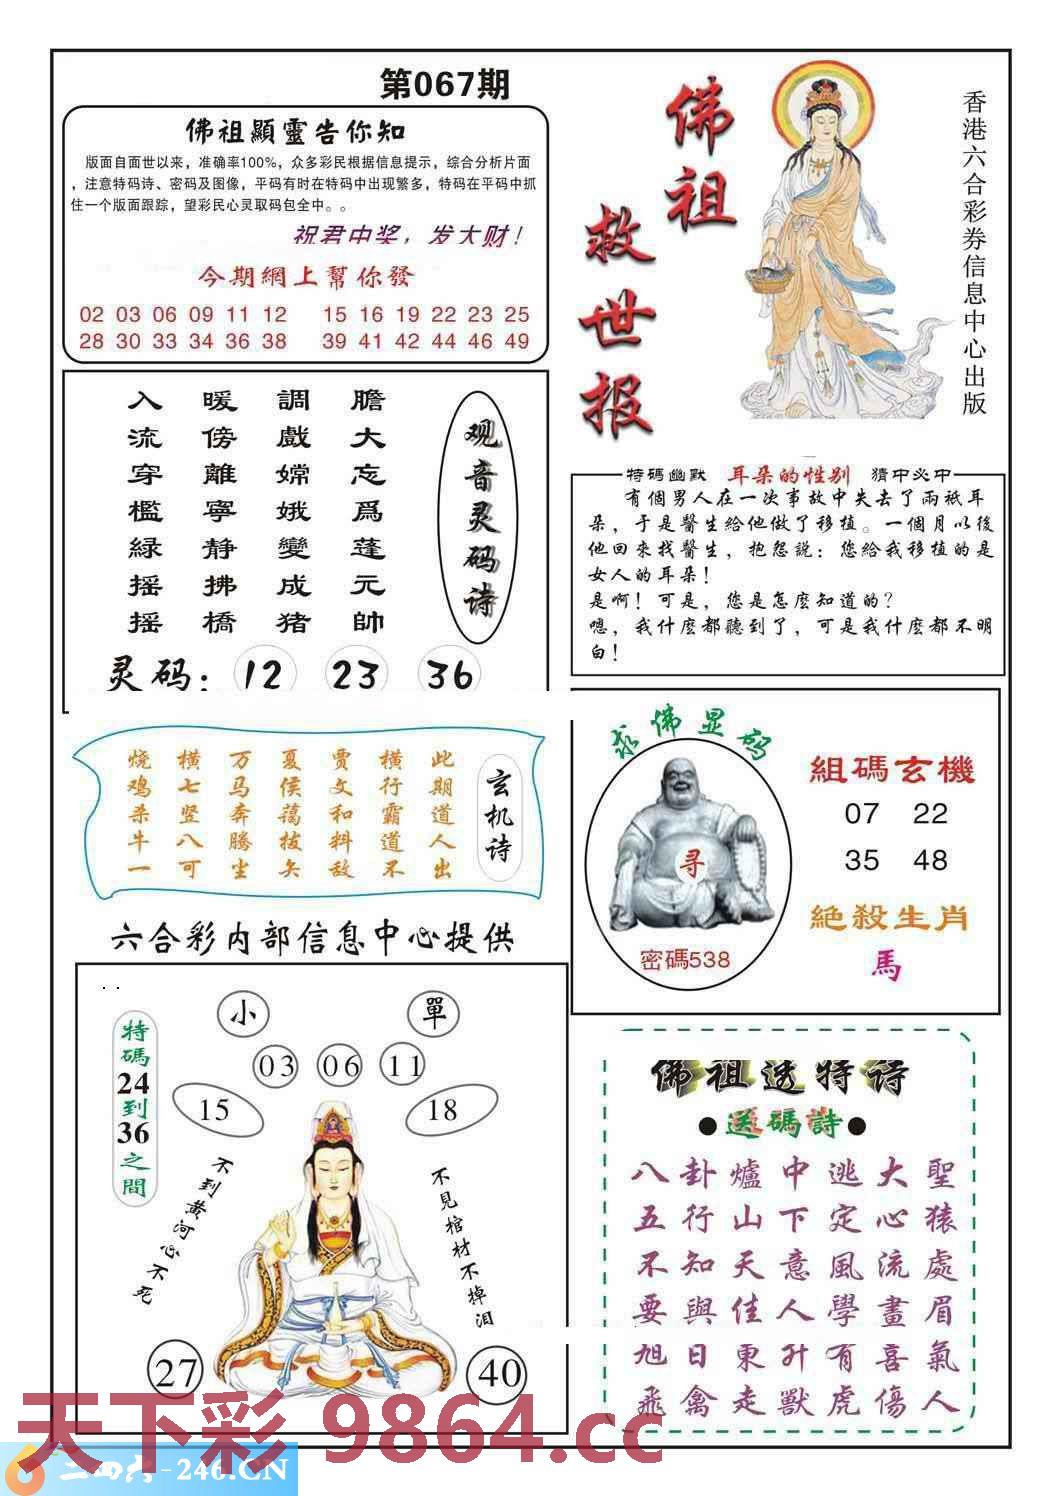 第067期
佛祖顯靈告你知
版面自面世以来，准确率100%，众多彩民根据信息提示，综合分析片面
，注意特码诗、密码及图像，平码有时在特码中出现繁多，特码在平码中抓
住一个版面跟踪，望彩民心灵取码包全中。。
祝君中奖，发大财！
今期網上幫你發
02 03 06 09 11 12 15 16 19 22 23 25
28 30 33 34 36 38 39 41 42 44 46 49
佛祖
救世报
香港六合彩券信息中心出版
观音灵码诗
膽大忘爲蓬元帥
調戲嫦娥變成猪
暖傍離寧静拂橋
入流穿檻緑摇摇
灵码：12 23 36
特碼幽默 耳朵的性别 猜中必中
有個男人在一次事故中失去了兩祇耳
朵，于是醫生給他做了移植。一個月以後
他回來找醫生，抱怨説：您給我移植的是
女人的耳朵！
是啊！可是，您是怎麽知道的？
嗯，我什麽都聽到了，可是我什麽都不明
白！
玄机诗
此期道人出
横行霸道不
贾文和料敌
夏侯蔼拔矢
万马奔腾坐
横七竖八可
烧鸡杀牛一
求佛显码
寻
密碼538
組碼玄機
07 22
35 48
絶殺生肖
馬
六合彩内部信息中心提供
特碼24到36之間
小
單
03 06 11
15
18
不到黄河心不死
不見棺材不掉泪
27
40
佛祖透特诗
●送碼詩●
八卦爐中逃大聖
五行山下定心猿
不知天意風流處
要與佳人學畫眉
旭日東升有喜氣
飛禽走獸虎傷人
天下彩 9864.cc
二四六-246.CN